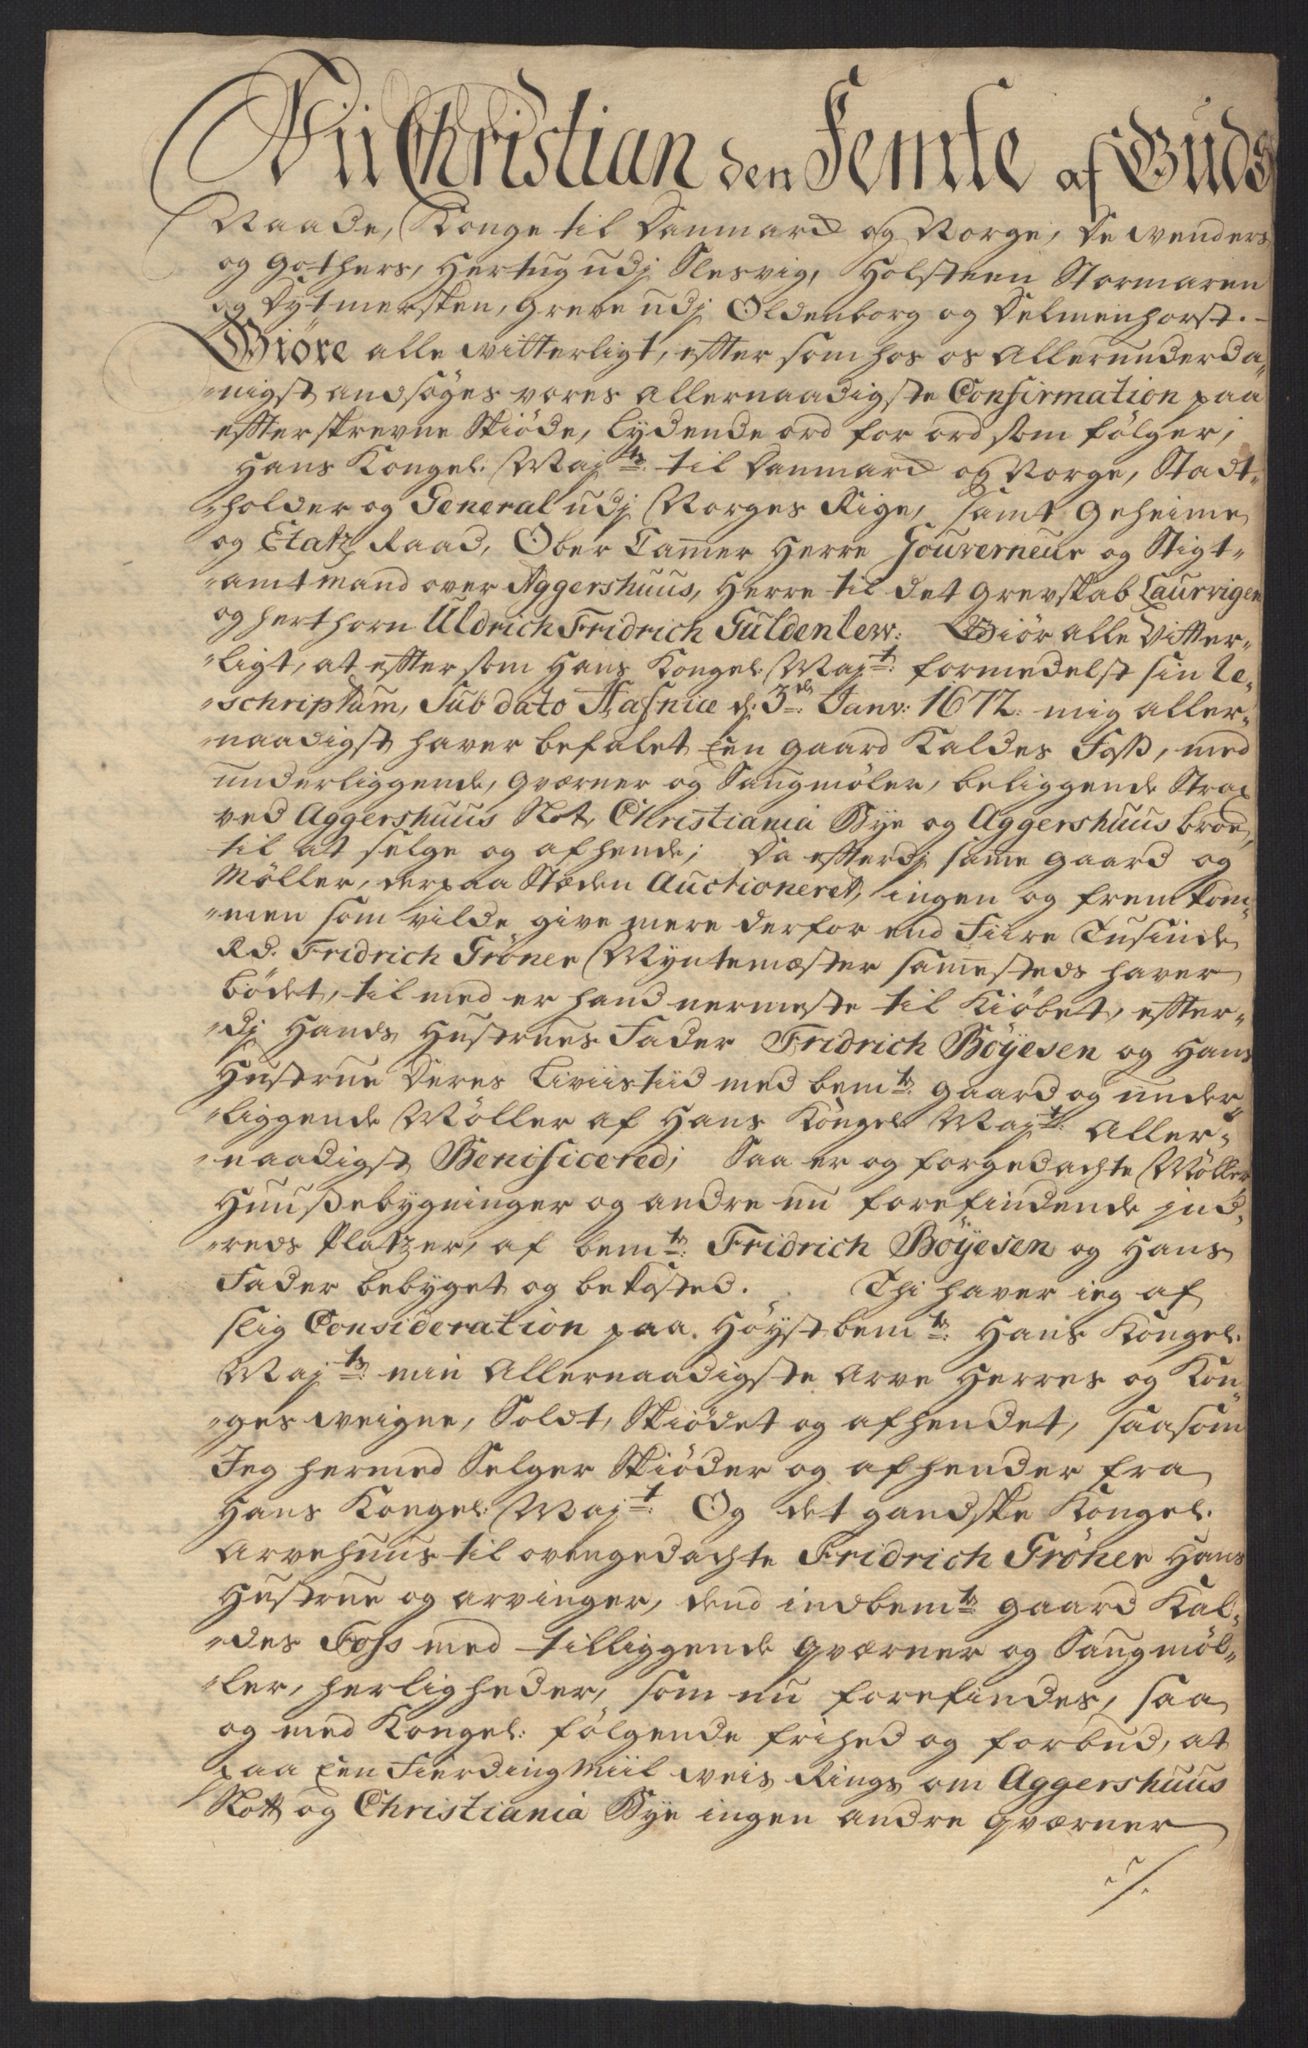 Vii Christian den Femte af Guds
Naade, Konge til Danmarck og Norge, De Wenders
og Gothers, Hertug udj Slesvig, Holsteen Stormaren
og Dytmersken, Greve udj Oldenborg og Delmenhorst. –
Giöre alle witterligt, effter som hos os Allerunderda-
-nigst andsöges vores Allernaadigste Confirmation paa
effterskrevne Skiöde, Lydende ord for ord som fölger;
Hans Kongel: May:ts til Danmarck og Norge, Stadt-
-holder og General udj Norges Rige, samt Geheime
og Etatz Raad, Ober Camer Herre Gouverneur og Stigt-
-amtmand over Aggershuus, Herre til det Grevskab Laurvigen
og Herthorn Uldrich Fridrich Güldenlew: Giör alle Vitter-
-ligt, at effter som Hans Kongel: May:t formedelst sin Re-
-schriptum, Sub dato Hafniæ d: 3de Janv: 1672. mig aller-
-naadigst haver befalet Een gaard Kaldes Foss, med
underliggende, Qværner og Saugmöler, beliggende Strax
ved Aggershuus Slot, Christiania Bye og Aggershuus broe,
til at selge og afhende; Da efferdj same gaard og
Möller, derpaa Stæden Auctioneret, ingen og fremkom-
-men som vilde give mere derfor end Fiire Tusinde
Rd. Fridrich Gröner Myntemæster samesteds haver
bödet, til med er hand nermeste til Kiöbet, effter-
-dj Hands Hustrues Fader Fridrich Böyesen og Hans
Hustrue Deres Liviistiid med bem:te gaard og under-
-liggende Möller af Hans Kongel: May:t Aller-
-naadigst Benificered; Saa er og forgedachte Möller
Huusebygninger og andre nu forefindende ind-
-reds Platzer, af bem:te Fridrich Böyesen og Hans
Fader bebyget og bekosted. Thi haver ieg af
slig Consideration paa. Höystbem:te Hans Kongel:
May:ts min Allernaadigste Arve Herres og Kon-
-ges weigne, Soldt, Skiödet og afhendet, saasom
Jeg hermed Selger Skiöder og afhender fra
Hans Kongel: May:t Og det gandske Kongel:
Arvehuus til ovengedachte Fridrich Gröner Hans
Hustrue og arvinger, dend indbem:te gaard Kal-
-des Foss med tilliggende qværner og Saugmöl-
-ler, herligheder, som nu forefindes, saa
og med Kongel: fölgende frihed og forbud, at
paa Een Fierding Miil weis Rings om Aggershuus
Slott og Christiania Bye ingen andre qværner